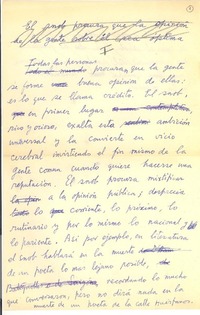 El snob procura que la opinión
de la gente sobre él sea óptima
I
Todas las personas
Todo el mundo procuran que la gente
se forme buena opinión de ellas:
es lo que se llama crédito. El snob,
en primer lugar
ocioso, exalta esta ambición
universal y la convierte en vicio
cerebral invirtiendo el fin mismo de la
gente común cuando quiere hacerse una
reputación. El snob procura mistificar
a la opinión pública, desprecia
lo corriente, lo próximo, lo
rutinario y por lo mismo lo nacional, y
lo pariente. Así por ejemplo, en literatura
el snob hablará en la muerte
de un poeta lo más lejano posible,
recordando lo mucho
que conversaron, pero no dirá nada en la
muerte de un poeta de la calle Huérfanos.